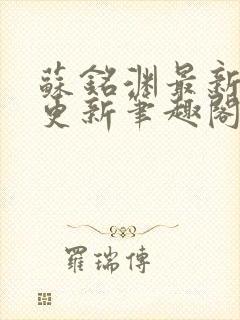 蘇銘淵最新
更新筆趣閣
羅瑞傳